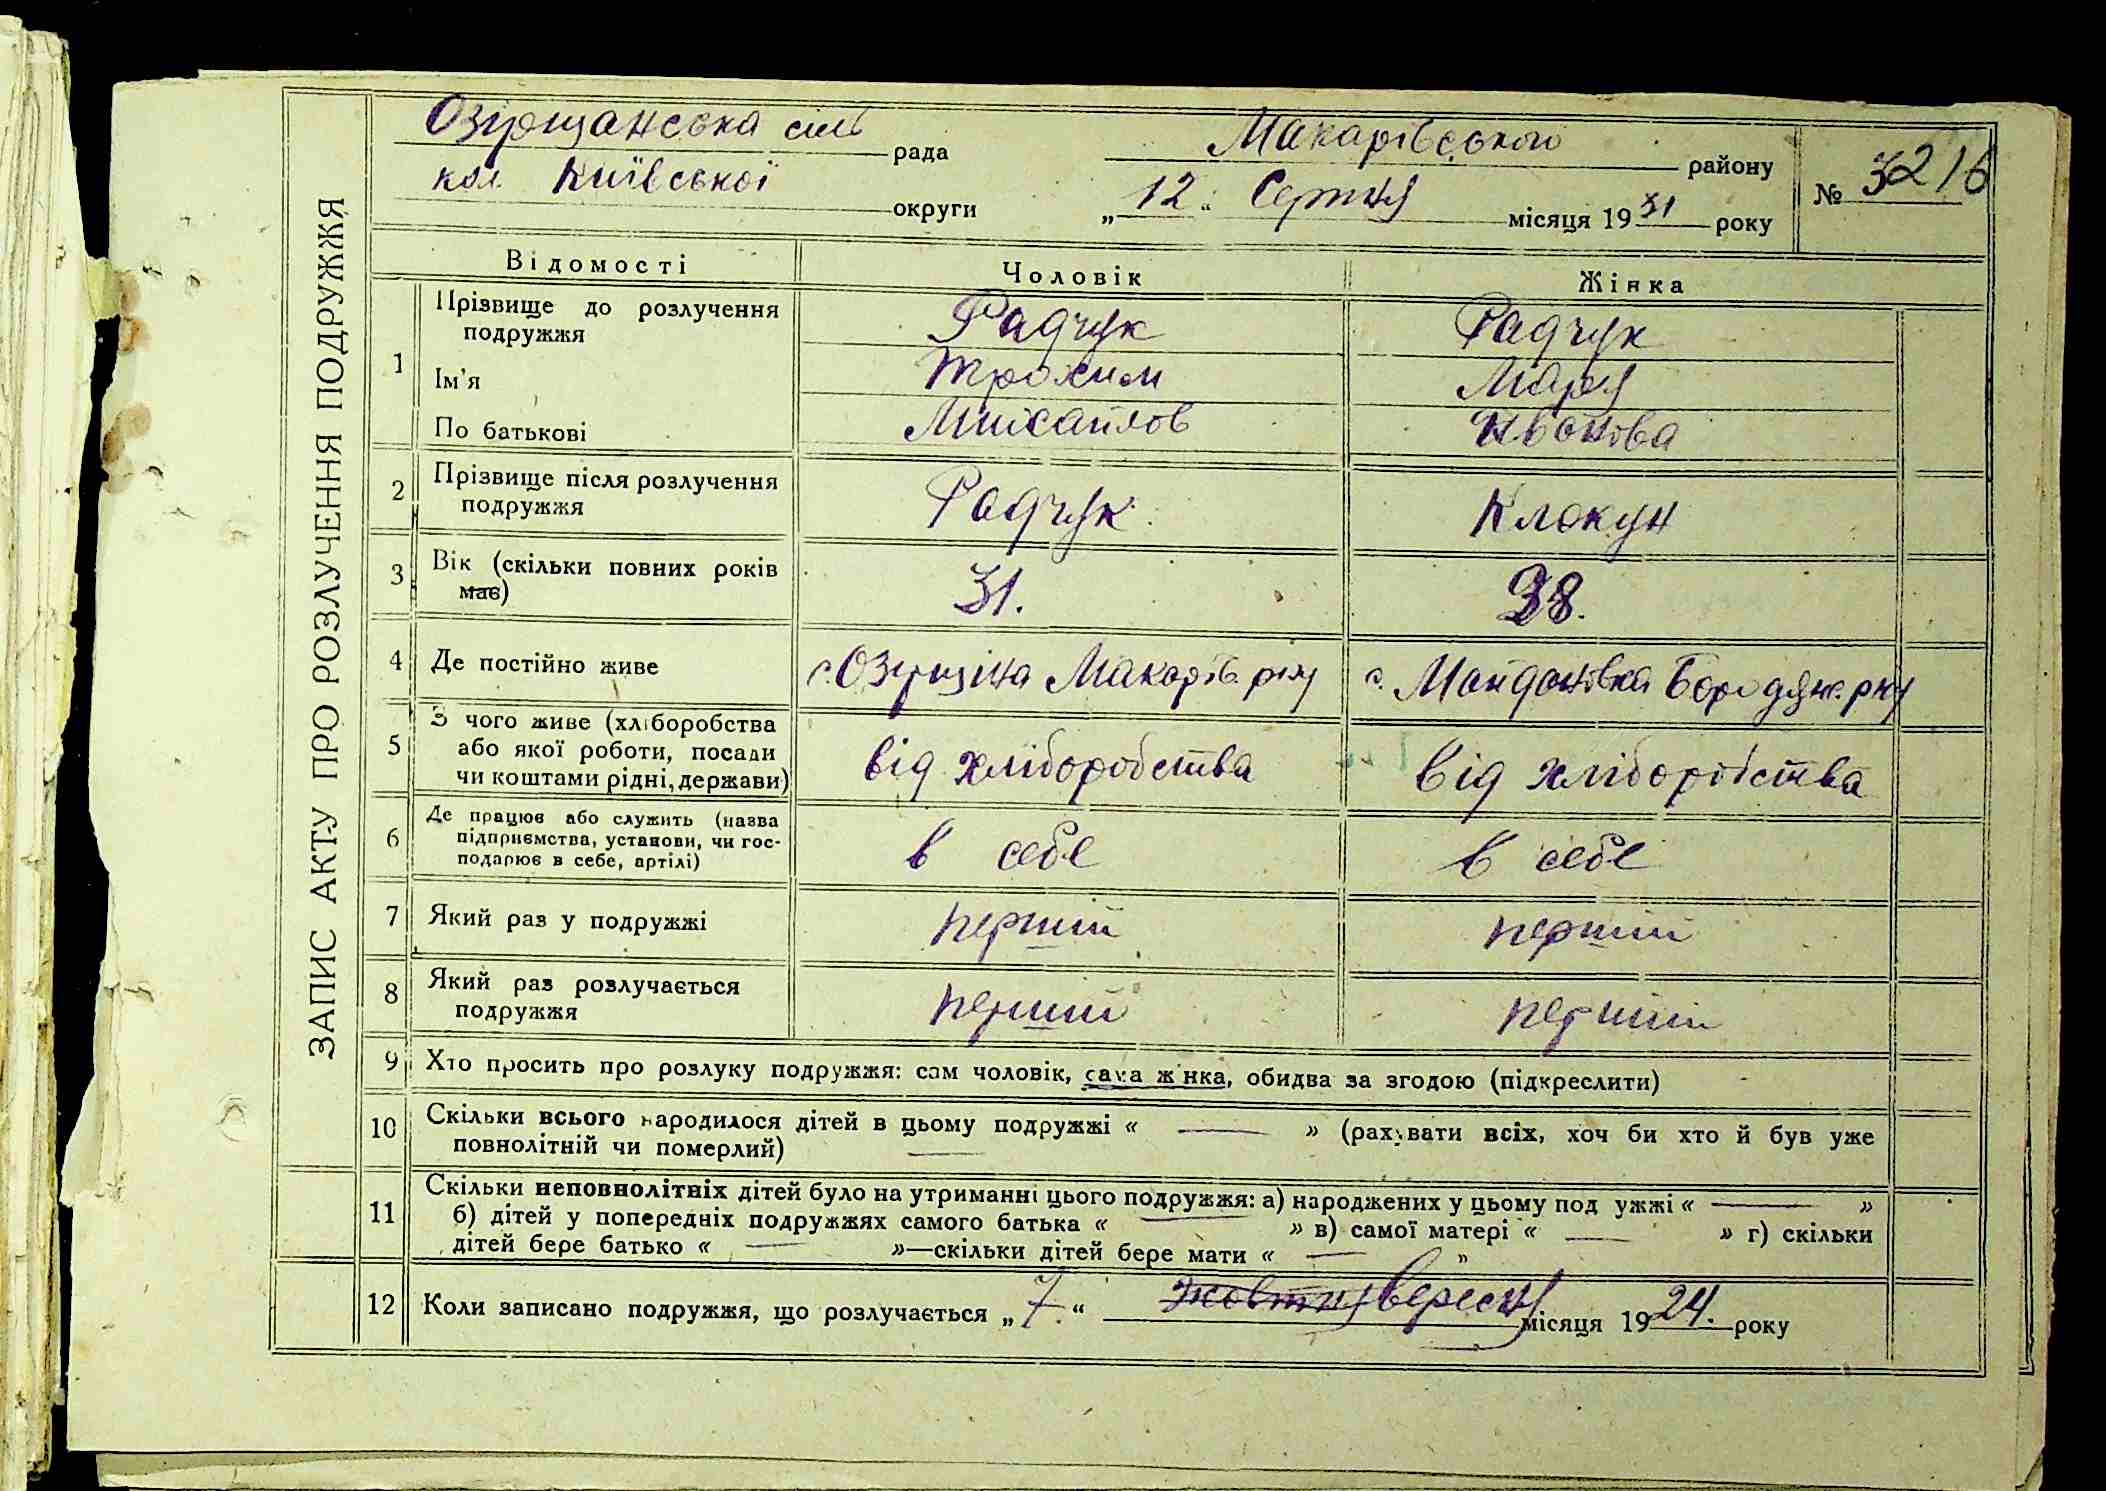 ЗАПИС АКТУ ПРО РОЗЛУЧЕННЯ ПОДРУЖЖЯ
Озірщанська сіль рада Макарівського району
кол. Київської округи „12“ Серпня місяця 1931 року
№ 3216
Відомості Чоловік Жінка
1 Прізвище до розлучення подружжя Радчук Радчук
Ім'я Трохим Марія
По батькові Михайлов Іванова
2 Прізвище після розлучення подружжя Радчук Клокун
3 Вік (скільки повних років має) 31. 38.
4 Де постійно живе с. Озірщина Макарів. р-ну с. Майданівка Бородянс. р-ну
5 З чого живе (хліборобства або якої роботи, посади чи коштами рідні, держави) від хліборобства від хліборобства
6 Де працює або служить (назва підприємства, установи, чи господарює в себе, артілі) в себе в себе
7 Який раз у подружжі перший перший
8 Який раз розлучається подружжя перший перший
9 Хто просить про розлуку подружжя: сам чоловік, сама жінка, обидва за згодою (підкреслити)
10 Скільки всього народилося дітей в цьому подружжі « — » (рахувати всіх, хоч би хто й був уже
повнолітній чи померлий) —
11 Скільки неповнолітніх дітей було на утриманні цього подружжя: а) народжених у цьому подружжі « — »
б) дітей у попередніх подружжях самого батька « — » в) самої матері « — » г) скільки
дітей бере батько « — »—скільки дітей бере мати « — »
12 Коли записано подружжя, що розлучається „7“ жовтня вересня місяця 1924. року